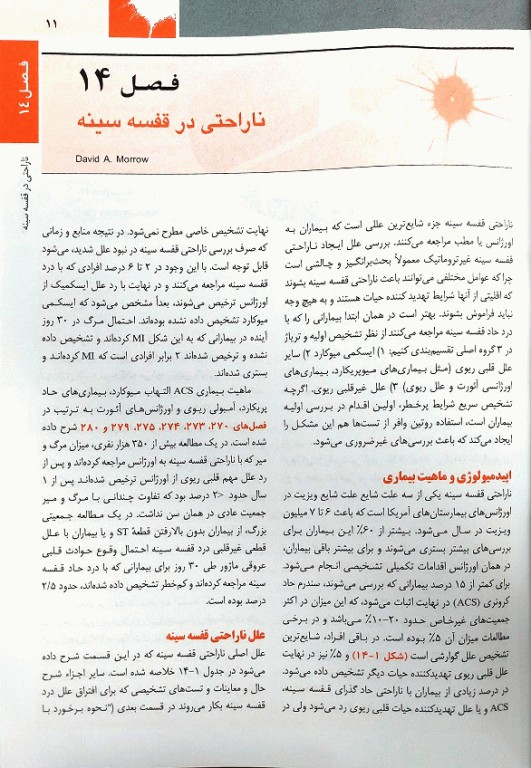 ۱۱
فصل ۱۴
ناراحتی در قفسه سینه
فصل ۱۴
ناراحتی در قفسه سینه
David A. Morrow
ناراحتی قفسه سینه جزء شایع‌ترین عللی است که بیماران به
اورژانس یا مطب مراجعه می‌کنند. بررسی علل ایجاد ناراحتی
قفسه سینه غیرتروماتیک معمولاً بحث‌برانگیز و چالشی است
چرا که عوامل مختلفی می‌توانند باعث ناراحتی قفسه سینه بشوند
که اقلیتی از آنها شرایط تهدید کننده حیات هستند و به هیچ وجه
نباید فراموش بشوند. بهتر است در همان ابتدا بیمارانی را که با
درد حاد قفسه سینه مراجعه می‌کنند از نظر تشخیص اولیه و تریاژ
در ۳ گروه اصلی تقسیم‌بندی کنیم: ۱) ایسکمی میوکارد ۲) سایر
علل قلبی ریوی (مثل بیماری‌های میوپریکارد، بیماری‌های
اورژانسی آئورت و علل ریوی) ۳) علل غیرقلبی ریوی. اگرچه
تشخیص سریع شرایط پرخطر، اولین اقدام در بررسی اولیه
بیماران است، استفاده روتین وافر از تست‌ها هم این مشکل را
ایجاد می‌کند که باعث بررسی‌های غیرضروری می‌شود.
اپیدمیولوژی و ماهیت بیماری
ناراحتی قفسه سینه یکی از سه علت شایع علت شایع ویزیت در
اورژانس‌های بیمارستان‌های آمریکا است که باعث ۶ تا ۷ میلیون
ویزیت در سال می‌شود. بیشتر از ۶۰٪ این بیماران برای
بررسی‌های بیشتر بستری می‌شوند و برای بیشتر باقی بیماران،
در همان اورژانس اقدامات تکمیلی تشخیصی انجام می‌شود.
برای کمتر از ۱۵ درصد بیمارانی که بررسی می‌شوند، سندرم حاد
کرونری (ACS) در نهایت اثبات می‌شود، که این میزان در اکثر
جمعیت‌های غیرخاص حدود ۲۰-۱۰٪ می‌باشد و در برخی
مطالعات میزان آن ۵٪ بوده است. در باقی افراد، شایع‌ترین
تشخیص علل گوارشی است (شکل ۱-۱۴) و ۵٪ نیز در نهایت
علل قلبی ریوی تهدیدکننده حیات دیگر تشخیص داده می‌شود.
در درصد زیادی از بیماران با ناراحتی حاد گذرای قفسه سینه،
ACS و یا علل تهدیدکننده حیات قلبی ریوی رد می‌شود ولی در
نهایت تشخیص خاصی مطرح نمی‌شود. در نتیجه منابع و زمانی
که صرف بررسی ناراحتی قفسه سینه در نبود علل شدید، می‌شود
قابل توجه است. با این وجود در ۲ تا ۶ درصد افرادی که با درد
قفسه سینه مراجعه می‌کنند و در نهایت با رد علل ایسکمیک از
اورژانس ترخیص می‌شوند، بعداً مشخص می‌شود که ایسکمی
میوکارد تشخیص داده نشده بوده‌اند. احتمال مرگ در ۳۰ روز
آینده در بیمارانی که به این شکل MI کرده‌اند و تشخیص داده
نشده و ترخیص شده‌اند ۲ برابر افرادی است که MI کرده‌اند و
بستری شده‌اند.
ماهیت بیماری ACS التهاب میوکارد، بیماری‌های حاد
پریکارد، آمبولی ریوی و اورژانس‌های آئورت به ترتیب در
فصل‌های ۲۷۰، ۲۷۳، ۲۷۴، ۲۷۵، ۲۷۹ و ۲۸۰ شرح داده
شده است. در یک مطالعه بیش از ۳۵۰ هزار نفری، میزان مرگ و
میر که با ناراحتی قفسه سینه به اورژانس مراجعه کرده‌اند و پس از
رد علل مهم قلبی ریوی از اورژانس ترخیص شده‌اند پس از ۱
سال حدود <۲ درصد بود که تفاوت چندانی با مرگ و میر
جمعیت عادی در همان سن نداشت. در یک مطالعه جمعیتی
بزرگ، از بیماران بدون بالارفتن قطعهٔ ST و یا بیماران با علل
قطعی غیرقلبی درد قفسه سینه احتمال وقوع حوادث قلبی
عروقی ماژور طی ۳۰ روز برای بیمارانی که با درد حاد قفسه
سینه مراجعه کرده‌اند و کم‌خطر تشخیص داده شده‌اند، حدود ۲/۵
درصد بوده است.
علل ناراحتی قفسه سینه
علل اصلی ناراحتی قفسه سینه که در این قسمت شرح داده
می‌شود در جدول ۱-۱۴ خلاصه شده است. سایر اجزاء شرح
حال و معاینات و تست‌های تشخیصی که برای افتراق علل درد
قفسه سینه بکار می‌روند در قسمت بعدی ("نحوه برخورد با